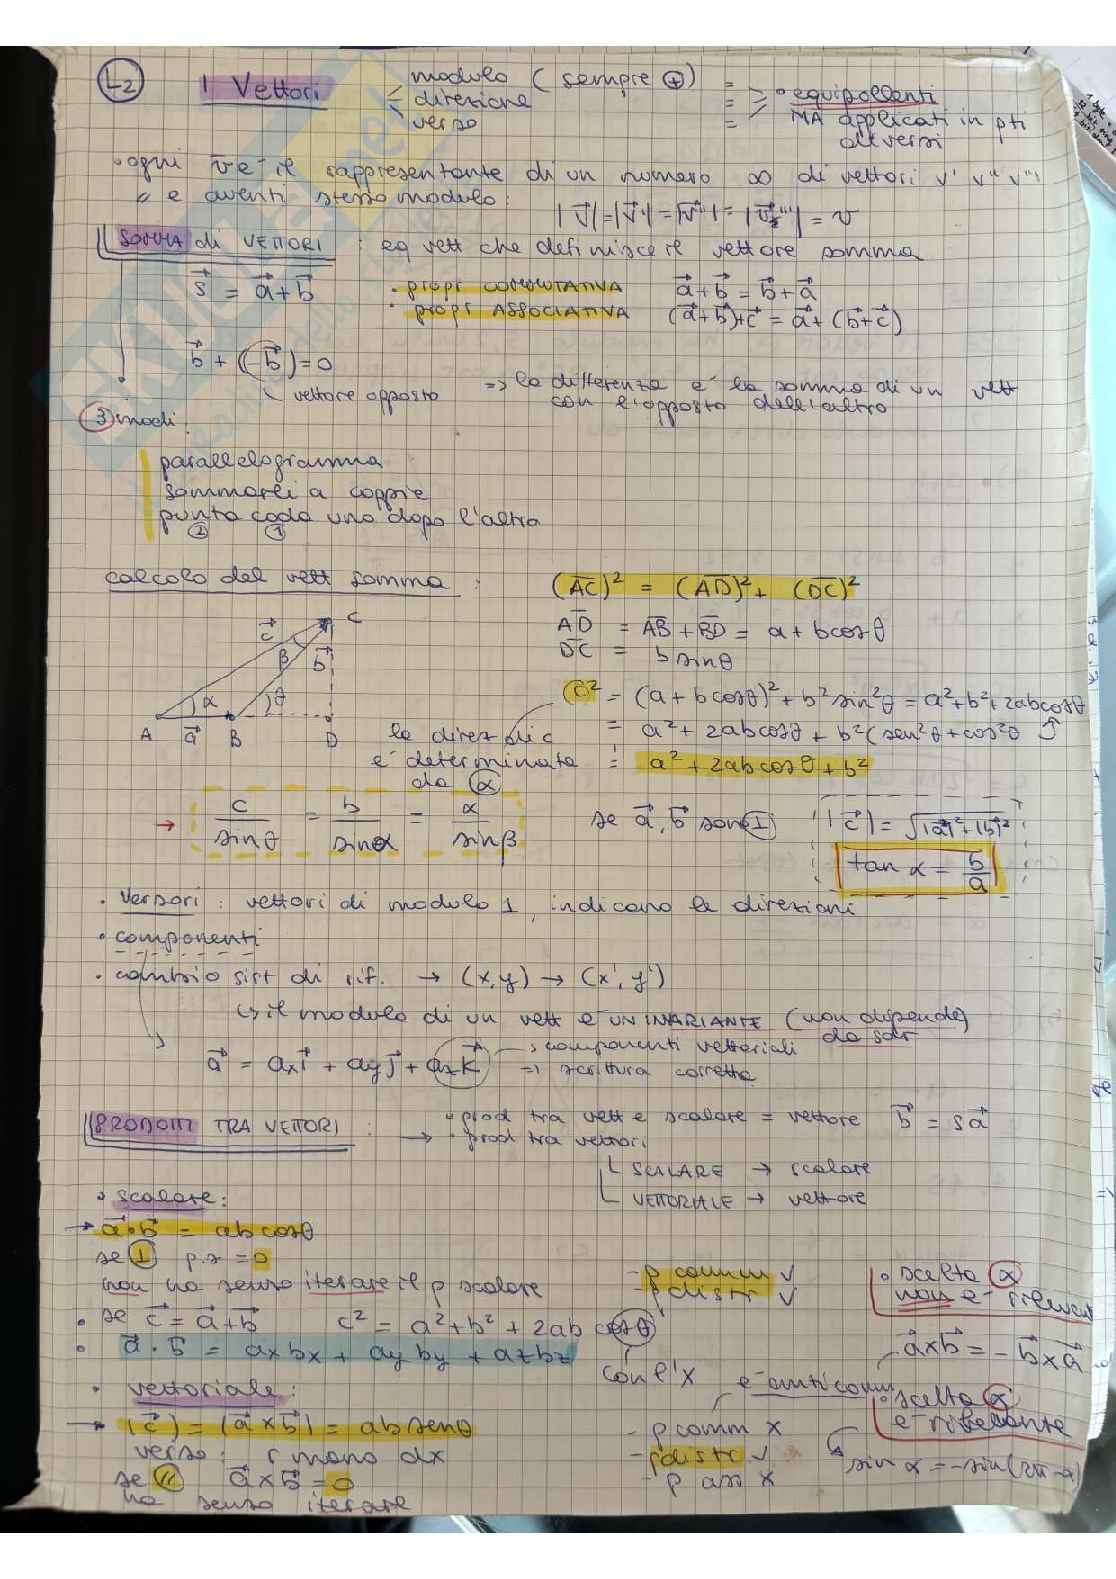 L2
I Vettori
modulo ( sempre ⊕)
direzione
verso
= equipollenti
MA applicati in pti
diversi
• ogni v̄ è il rappresentante di un numero ∞ di vettori v' v'' v'''
// e aventi stesso modulo:
|v⃗| = |v⃗'| = |v⃗''| = |v⃗'''| = v
SOMMA di VETTORI : eq vett che definisce il vettore somma
s⃗ = a⃗+b⃗
• propr COMMUTATIVA a⃗+b⃗ = b⃗+a⃗
• propr ASSOCIATIVA (a⃗+b⃗)+c⃗ = a⃗+(b⃗+c⃗)
b⃗ + (-b⃗) = 0
vettore opposto
=> la differenza e' la somma di un vett
con l'opposto dell'altro
3 modi:
parallelogramma
sommarli a coppie
punta coda uno dopo l'altro
2 1
calcolo del vett somma :
(AC)² = (AD)² + (DC)²
AD = AB + BD = a + bcosθ
DC = b sinθ
c² = (a + bcosθ)² + b² sin²θ = a²+b²+2abcosθ
= a² + 2abcosθ + b²(sen²θ+cos²θ
= a² + 2abcosθ + b²
c⃗ C
β b⃗
α θ
A a⃗ B D
la direz di c
e' determinata
da α
→ c/sinθ = b/sinα = a/sinβ
se a⃗, b⃗ sono ⊥
|c⃗| = √|a⃗|²+|b⃗|²
tan α = b/a
• versori : vettori di modulo 1, indicano le direzioni
• componenti
• cambio sist di rif. → (x,y) → (x', y')
↳ il modulo di un vett e' UN INVARIANTE (non dipende)
da sdr
a⃗ = axi⃗ + ayj⃗ + azk⃗
→ componenti vettoriali
=> scrittura corretta
PRODOTTI TRA VETTORI :
• prod tra vett e scalare = vettore b⃗ = sa⃗
→ • prod tra vettori
SCALARE → scalare
VETTORIALE → vettore
• scalare:
→ a⃗•b⃗ = ab cosθ
se ⊥ p.s = 0
non ha senso iterare il p scalare
- p comm ✓
- p distr ✓
• scelta α
non e'
• se c⃗ = a⃗+b⃗ c² = a²+b² + 2ab cosθ
• a⃗ • b⃗ = axbx + ayby + azbz
con l'x
a⃗xb⃗ = - b⃗xa⃗
• vettoriale:
e' anticomm
• scelta α
e' rilevante
→ |c⃗| = |a⃗ x b⃗| = ab senθ
verso: r mano dx
se // a⃗ x b⃗ = 0
no senso iterare
- p comm x
- p distr ✓
- p ass x
sin α = -sin(2π-α)